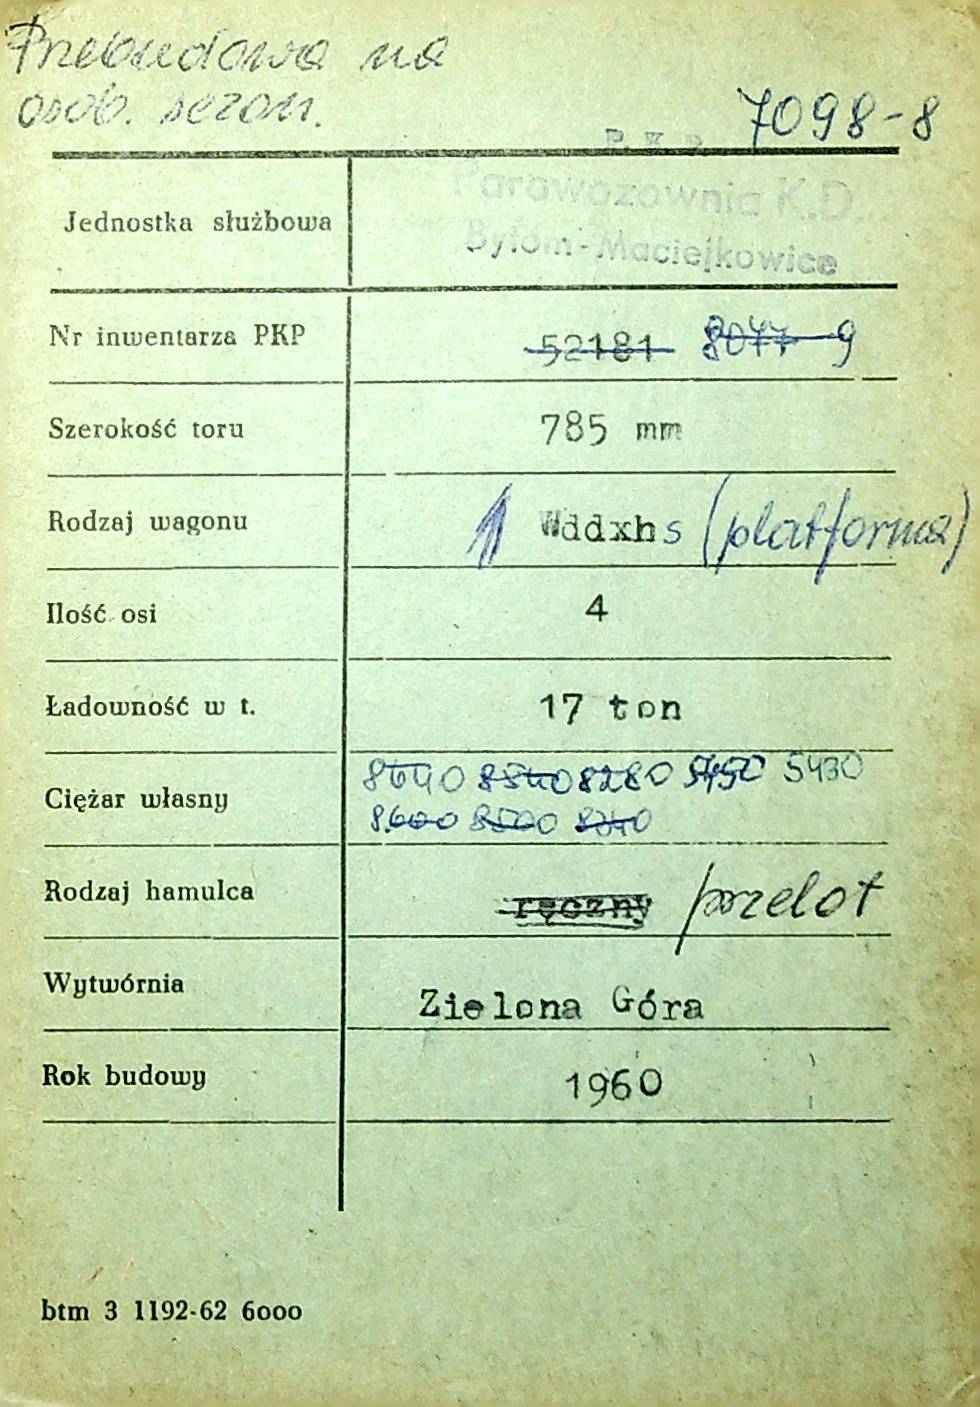 Przebudowa na
osob. sezon.
7098-8
P.K.P.
Parowozownia K.D.
Jednostka służbowa
Bytom-Maciejkowice
Nr inwentarza PKP 52181 8077-9
Szerokość toru 785 mm
Rodzaj wagonu Wddxhs (platforma)
Ilość osi 4
Ładowność w t. 17 ton
8640 8540 8280 5450 5430
Ciężar własny
8600 8500 8240
Rodzaj hamulca ręczny przelot
Wytwórnia Zielona Góra
Rok budowy 1960
btm 3 1192-62 6000